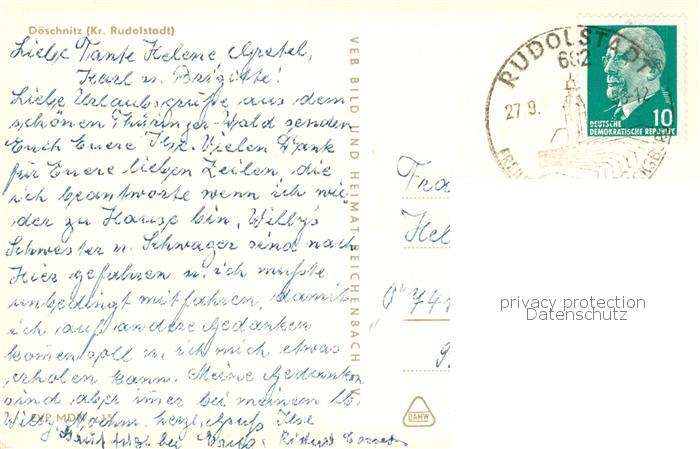 Döschnitz (Kr. Rudolstadt)
Liebe Tante Helene, Gretel,
Karl u. Brigitte!
Liebe Urlaubsgrüße aus dem
schönen Thüringer-Wald senden
Euch Euere Ilse. Vielen Dank
für Euere lieben Zeilen, die
ich beantworte wenn ich wie-
der zu Hause bin. Willy's
Schwester u. Schwager sind nach
hier gefahren u. ich mußte
unbedingt mitfahren, damit
ich auf andere Gedanken
kommen soll u. ich mich etwas
erholen kann. Meine Gedanken
sind aber immer bei meinem lb.
Willy. Nochm. herzl. Gruß Ilse
EVP MDN 0,15
VEB BILD UND HEIMAT REICHENBACH V
RUDOLSTADT
682
27 9.
10
DEUTSCHE
DEMOKRATISCHE REPUBLIK
Fra
Hel
741
DAMW
privacy protection
Datenschutz